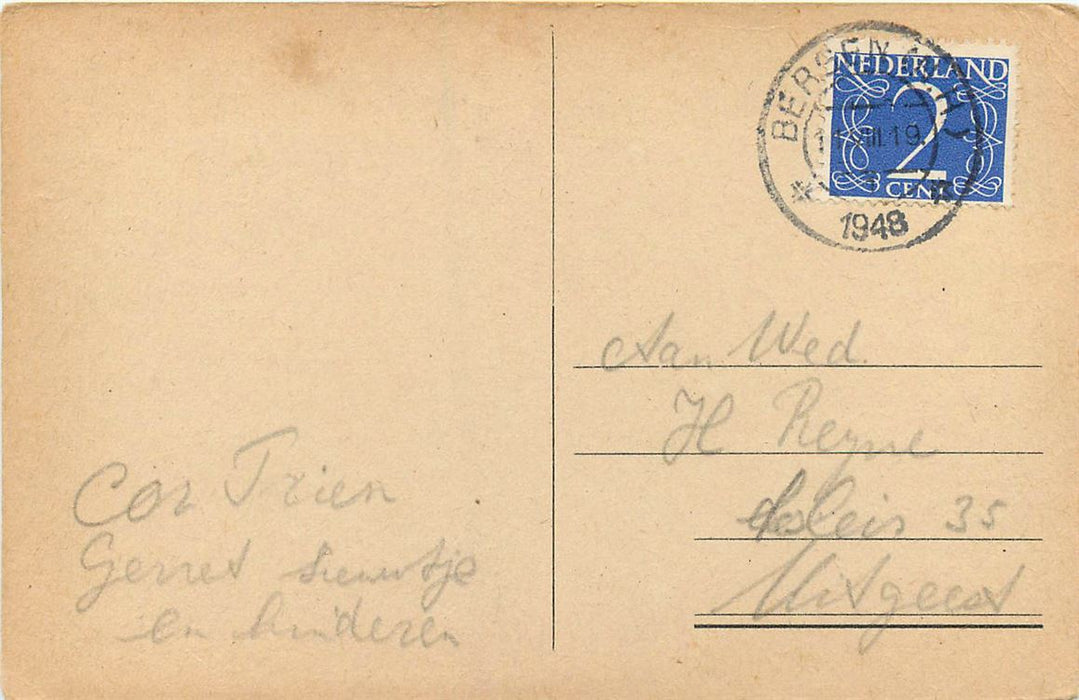 NEDERLAND
2
CENT
1948
Aan Wed.
H Reyne
35
Uitgeest
Cor Trien
Gerret Sieuwtje
en kinderen